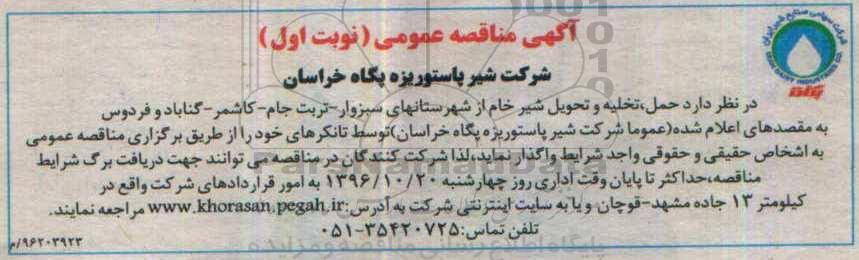 آگهی مناقصه عمومی (نوبت اول)
شرکت شیر پاستوریزه پگاه خراسان
در نظر دارد حمل،تخلیه و تحویل شیر خام از شهرستانهای سبزوار-تربت جام-کاشمر-گناباد و فردوس
به مقصدهای اعلام شده(عموما شرکت شیر پاستوریزه پگاه خراسان)توسط تانکرهای خود را از طریق برگزاری مناقصه عمومی
به اشخاص حقیقی و حقوقی واجد شرایط واگذار نماید،لذا شرکت کنندگان در مناقصه می توانند جهت دریافت برگ شرایط
مناقصه،حداکثر تا پایان وقت اداری روز چهارشنبه ۱۳۹۶/۱۰/۲۰ به امور قراردادهای شرکت واقع در
کیلومتر ۱۳ جاده مشهد-قوچان و یا به سایت اینترنتی شرکت به آدرس:www.khorasan.pegah.ir مراجعه نمایند.
تلفن تماس:۳۵۴۲۰۷۲۵-۰۵۱
۹۶۲۰۳۹۲۳/م
شرکت سهامی صنایع شیر ایران
IRAN DAIRY INDUSTRIES CO.
پگاه